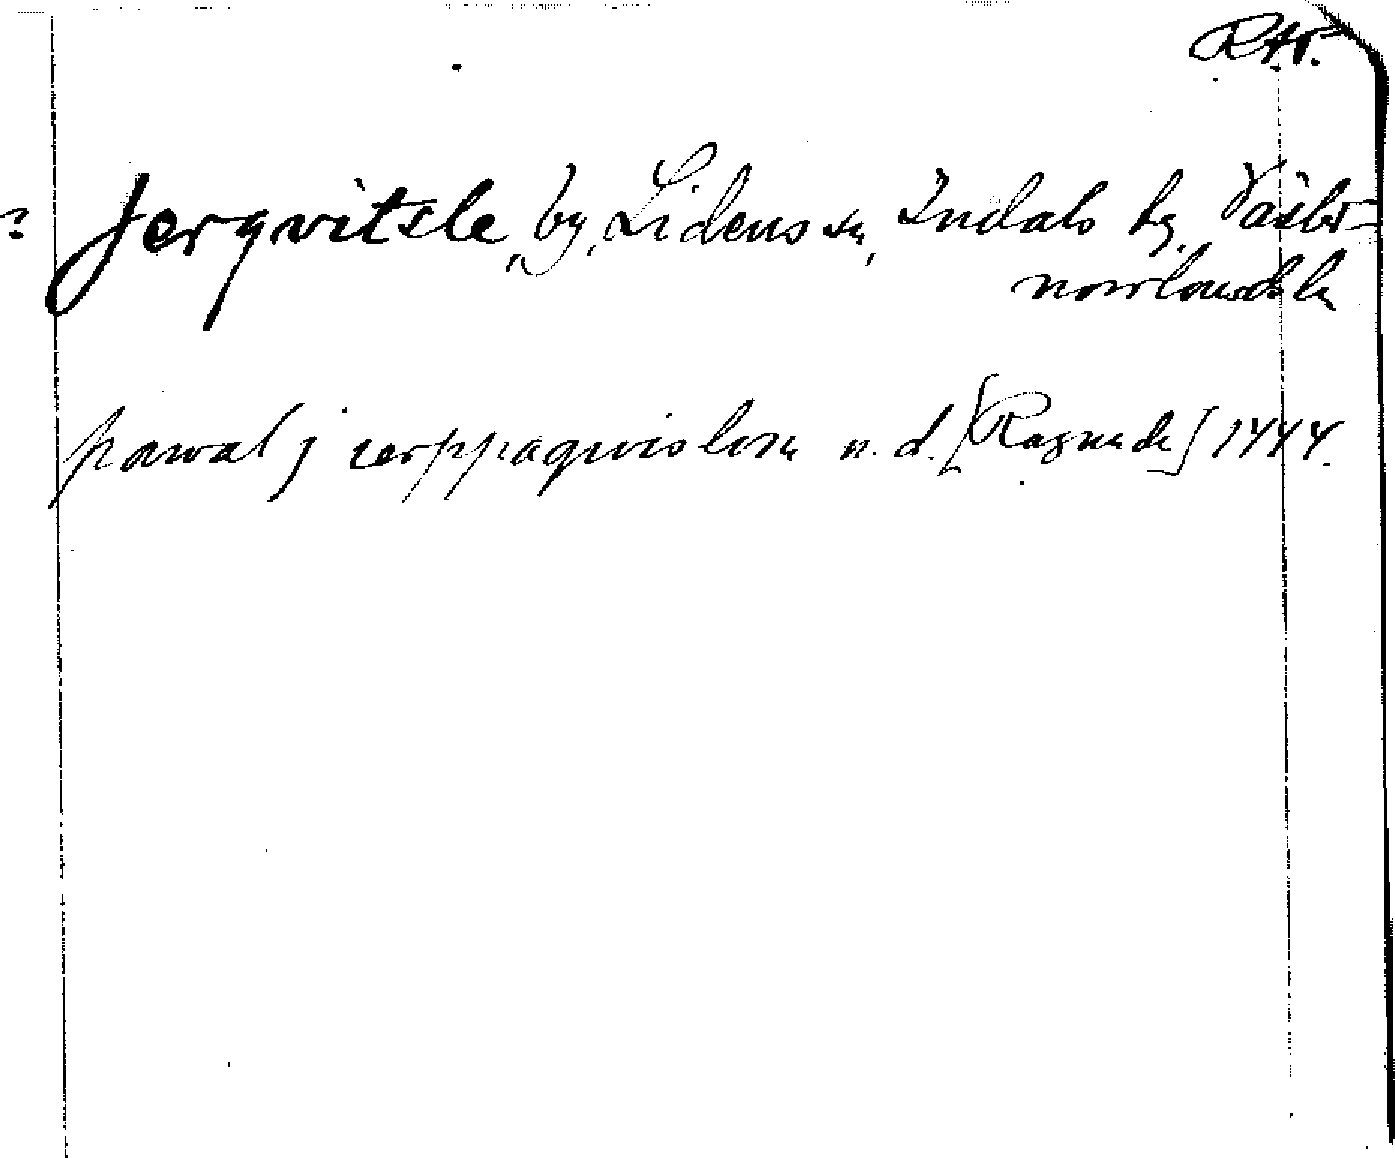 RAp.
? Jerqvitsle, by, Lidens sn, Indals tg. Väster-
norrlands län
pawal j ierppaqwislom n. d. [Ragunda] 1444.